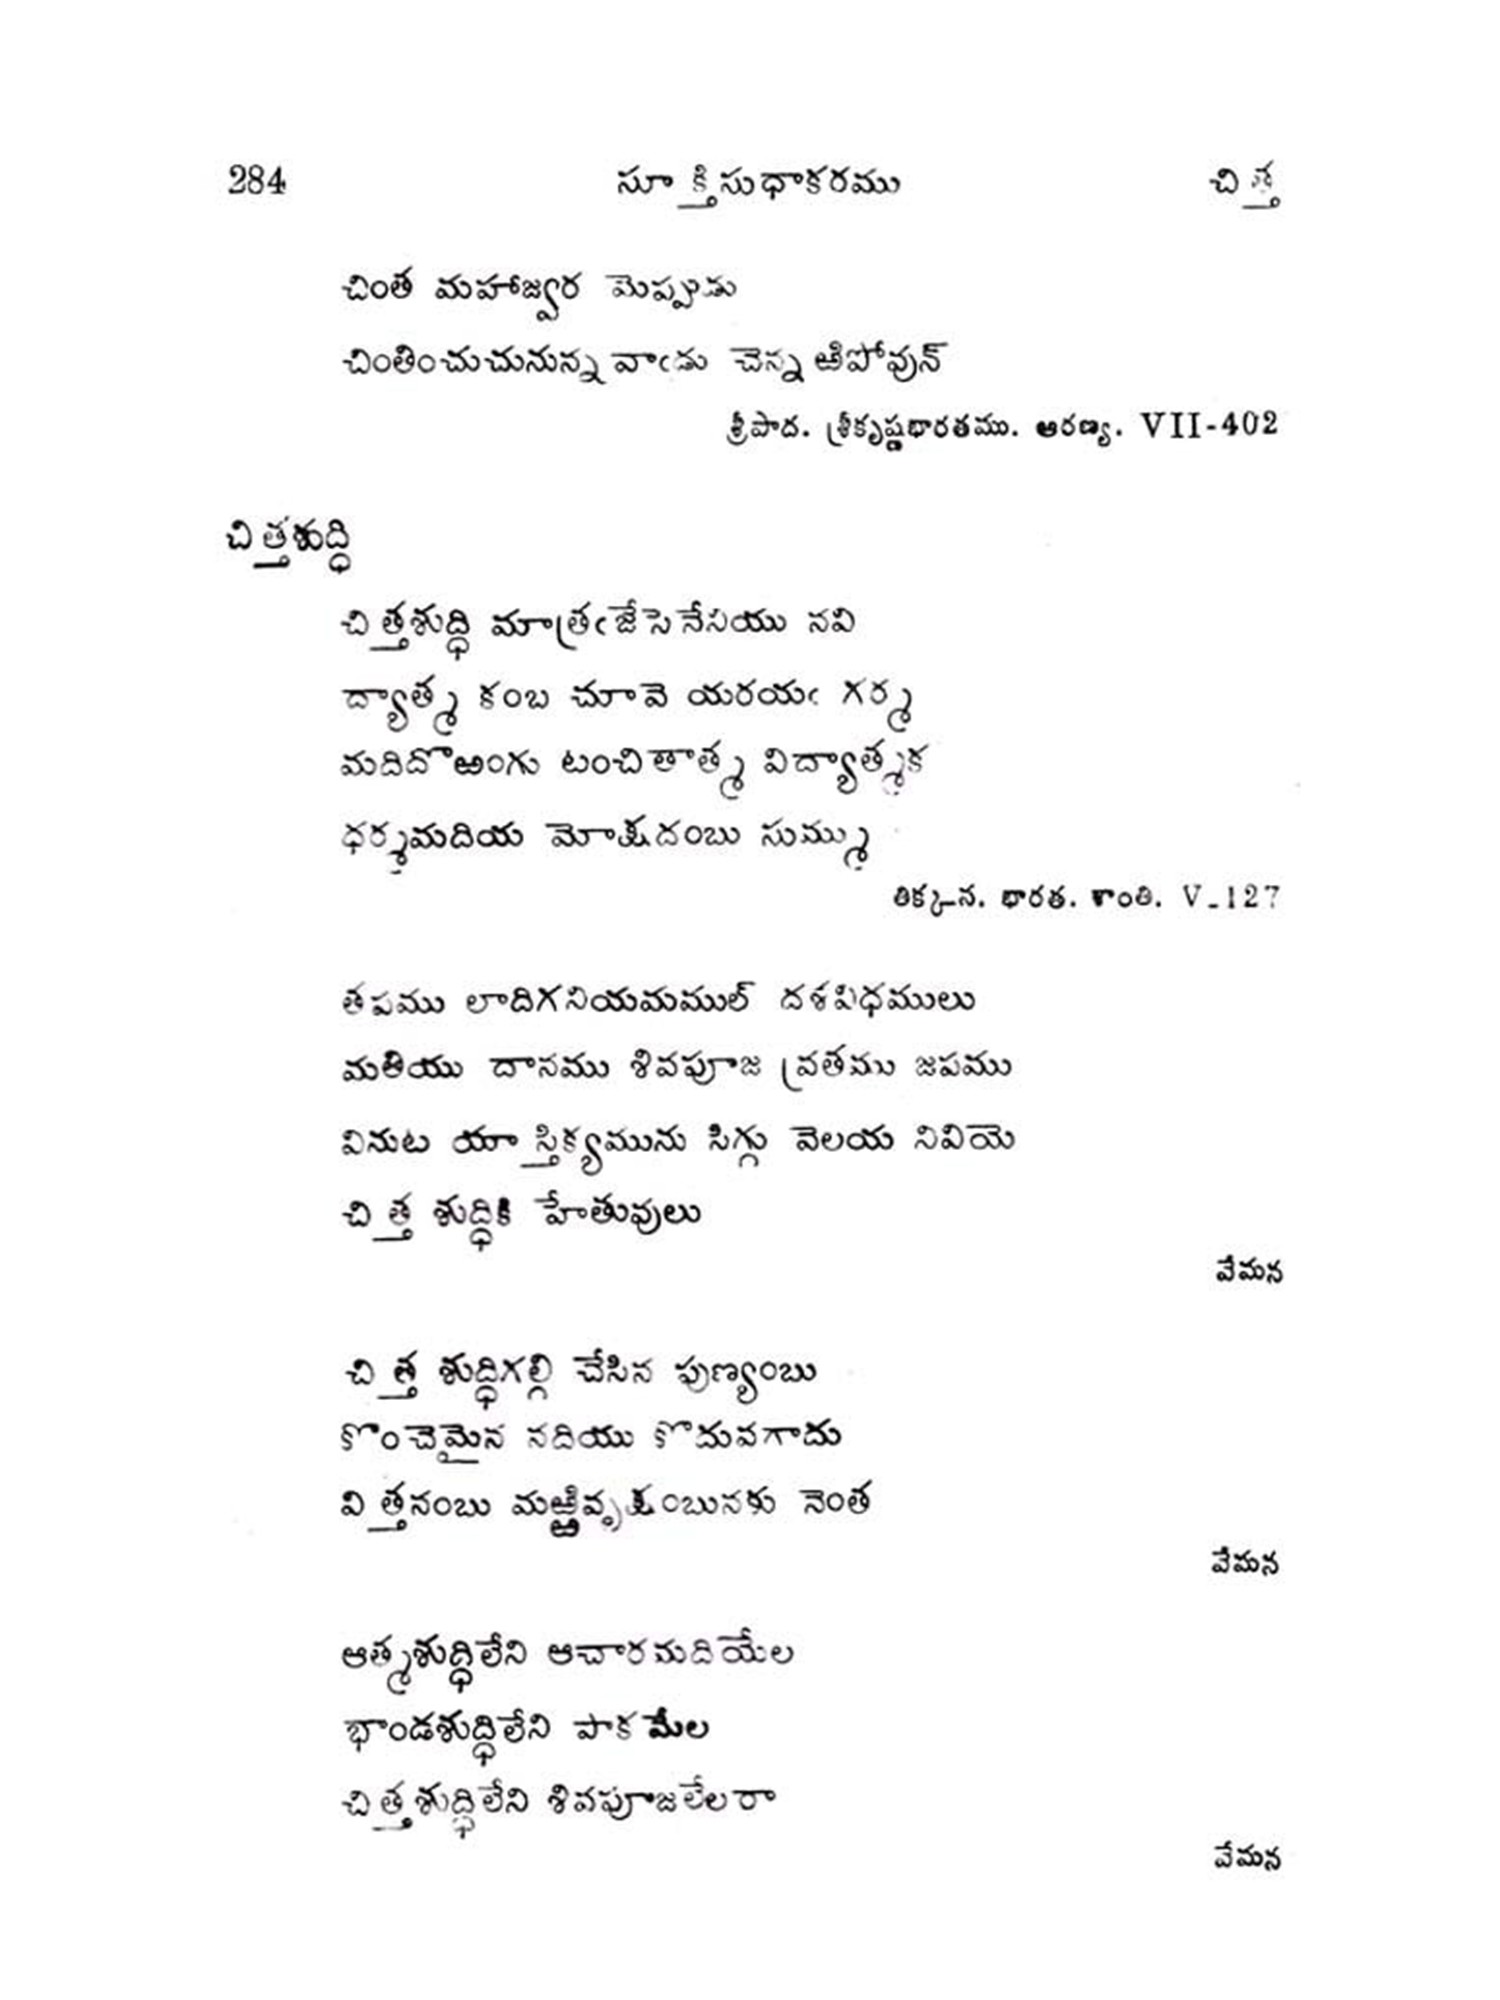 284 సూక్తిసుధాకరము చిత్త
చింత మహాజ్వర మెప్పుడు
చింతించుచునున్న వాఁడు చెన్న ఱిపోవున్
శ్రీపాద. శ్రీకృష్ణభారతము. ఆరణ్య. VII-402
చిత్తశుద్ధి
చిత్తశుద్ధి మాత్రఁజేసెనేనియు నవి
ద్యాత్మ కంబ చూవె యరయఁ గర్మ
మదిదొఱంగు టంచితాత్మ విద్యాత్మక
ధర్మమదియ మోక్షదంబు సుమ్ము
తిక్కన. భారత. శాంతి. V-127
తపము లాదిగనియమముల్ దశవిధములు
మతియు దానము శివపూజ వ్రతము జపము
వినుట యాస్తిక్యమును సిగ్గు వెలయ నివియె
చిత్త శుద్ధికి హేతువులు
వేమన
చిత్త శుద్ధిగల్గి చేసిన పుణ్యంబు
కొంచెమైన నదియు కొదువగాదు
విత్తనంబు మఱ్ఱివృక్షంబునకు నెంత
వేమన
ఆత్మశుద్ధిలేని ఆచారమదియేల
భాండశుద్ధిలేని పాకమేల
చిత్తశుద్ధిలేని శివపూజలేలరా
వేమన